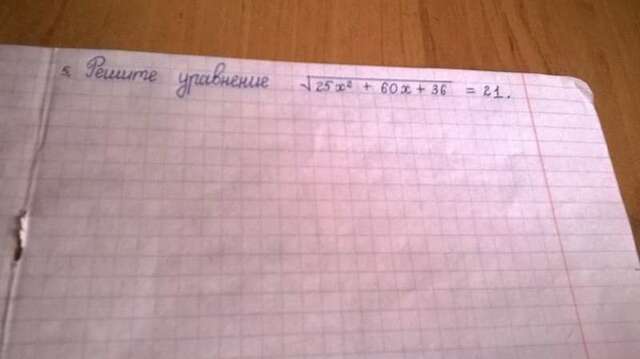 5. Решите уравнение √25x² + 60x + 36 = 21.